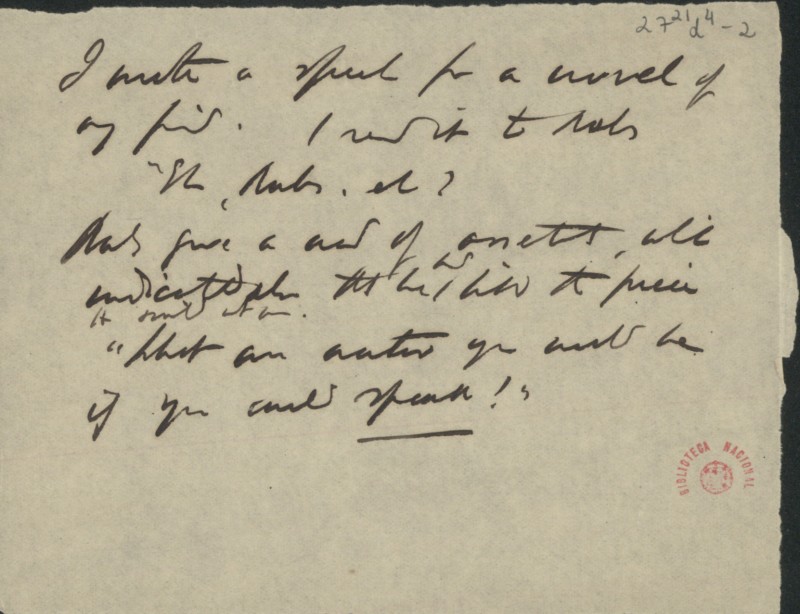 27²¹ d⁴ - 2
I wrote a speech for a novel of
my friend. I read it to Rabs
"Eh, Rabs, eh?
Rabs gave a nod of assent, which
indicated also that he had liked the piece
"What an orator you would be
if you could speak!"
BIBLIOTECA NACIONAL